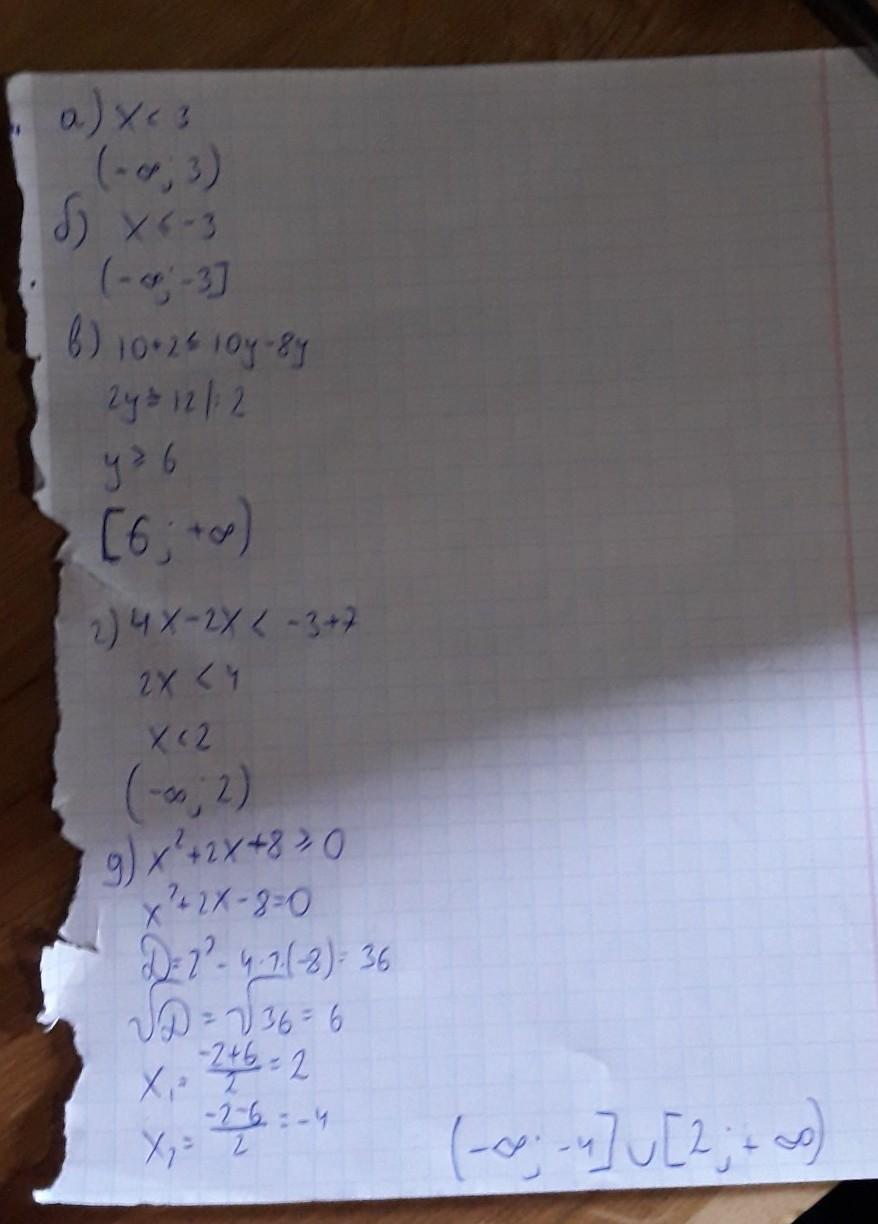 а) x < 3
(-∞; 3)
б) x < -3
(-∞; -3]
в) 10+2≤10y-8y
2y≥12 |:2
y≥6
[6; +∞)
г) 4x-2x< -3+7
2x <4
x<2
(-∞; 2)
д) x²+2x+8≥0
x²+2x-8=0
D=2²-4·1·(-8)=36
√D = √36 = 6
x₁= (-2+6)/2 = 2
x₂= (-2-6)/2 = -4
(-∞; -4]∪[2; +∞)